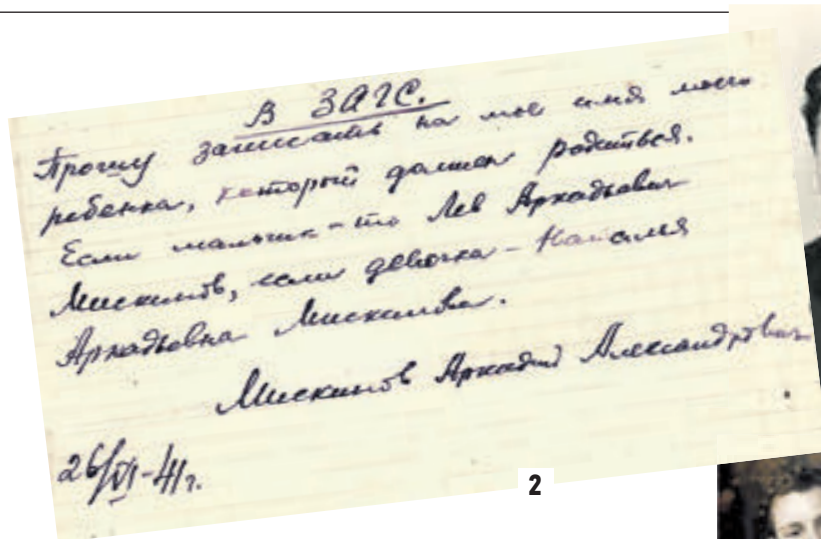 В ЗАГС.
Прошу записать на мое имя моего
ребенка, который должен родиться.
Если мальчик - то Лев Аркадьевич
Мискинов, если девочка - Наталия
Аркадьевна Мискинова.
Мискинов Аркадий Александрович
26/VI-41г.
2